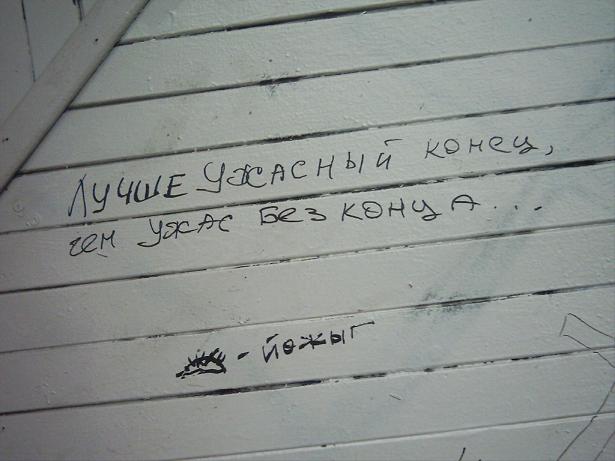 Лучше ужасный конец,
чем ужас без конца...
- йожыг